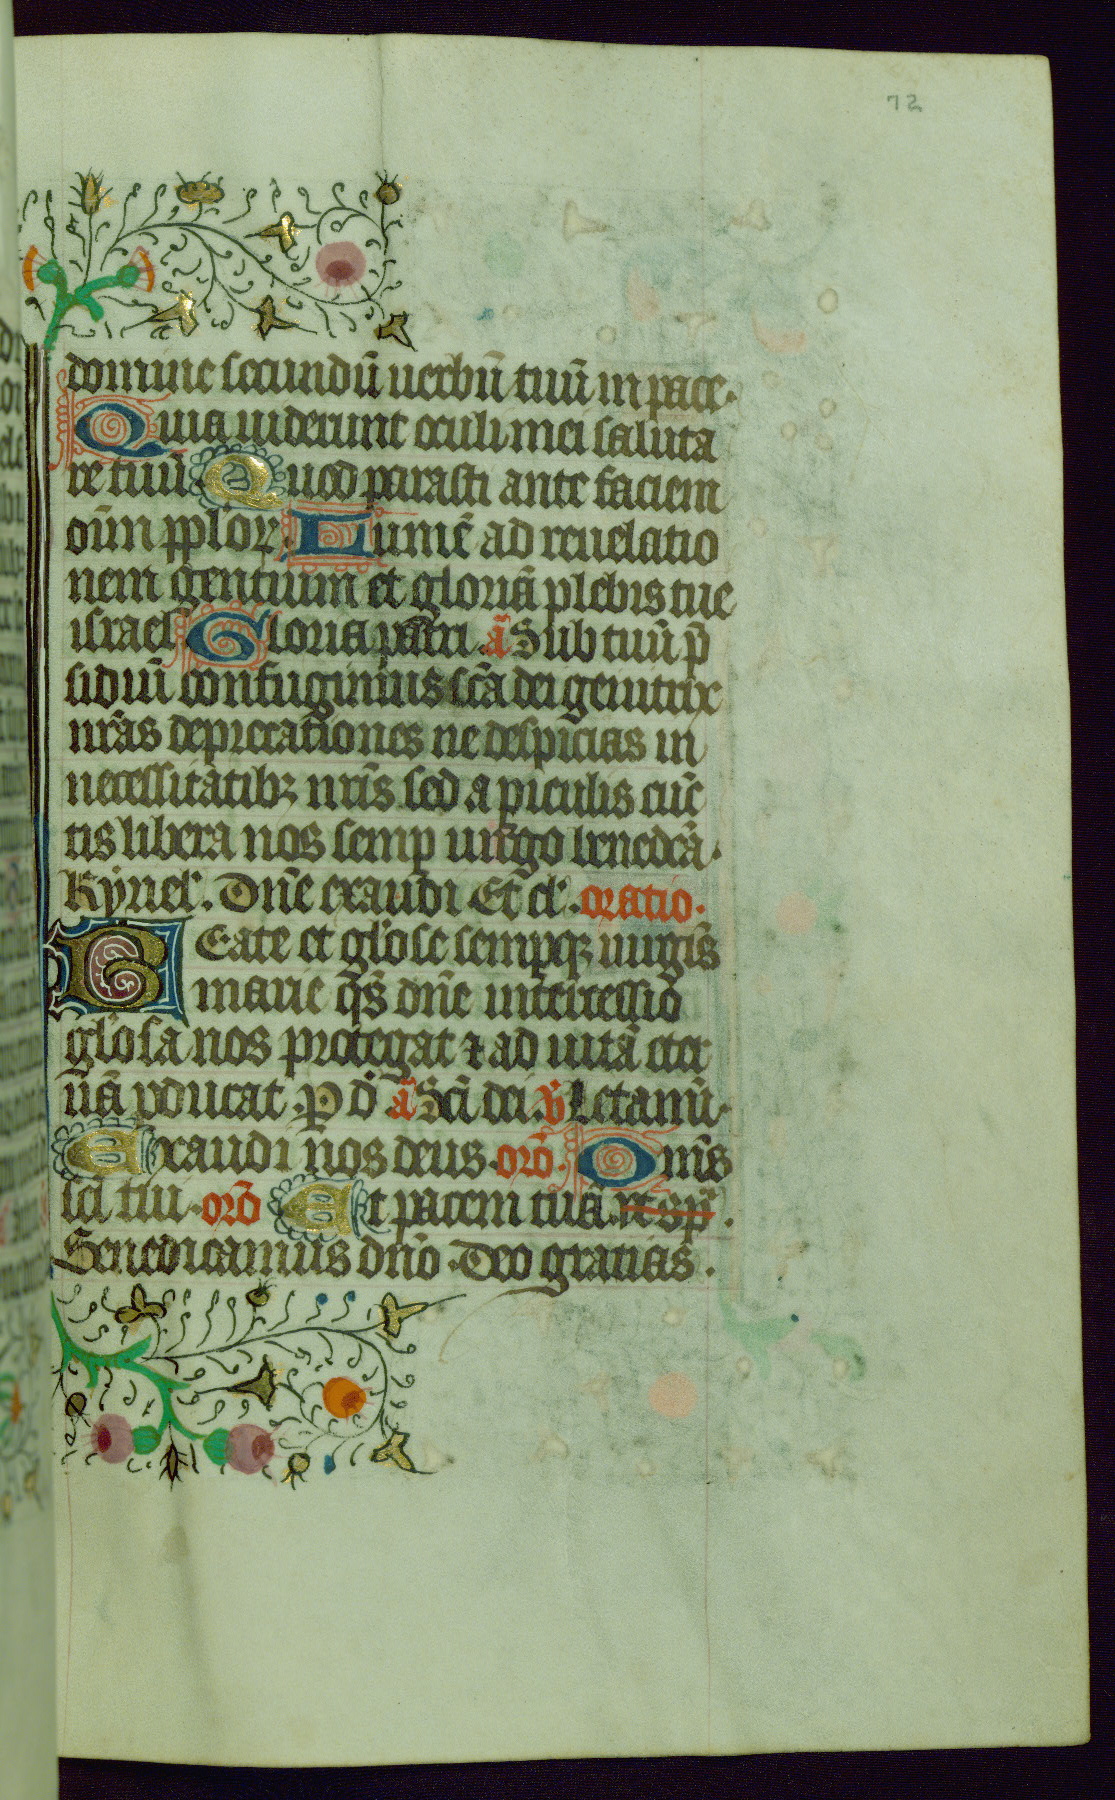 72
domine secundū uerbū tuū in pace.
Quia uiderunt oculi mei saluta
re tuū Quod parasti ante faciem
oīm pplor̄ Lumē ad reuelatio
nem gentium et gloriā plebis tue
israel Gloria patri. ā Sub tuū p̄
sidiū confugimus scā dei genitrix
nr̄as deprecationes ne despicias in
necessitatibꝫ nr̄is sed a piculis cūc
tis libera nos semp uirgo benedcā.
Kyriel'. Dn̄e exaudi Et cl'. oratio.
BEate et gl'ose sempqꝫ uirgīs
marie qs̄ dn̄e intercessio
gl'osa nos protegat ⁊ ad uitā eter
nā pducat. P d̄ ā Sc̄i dei. v̄ Letamī.
Exaudi nos deus. orō. Omīs
sc̄i tui. orō Et pacem tuā. resp̄.
Benedicamus dn̄o. Deo gratias.